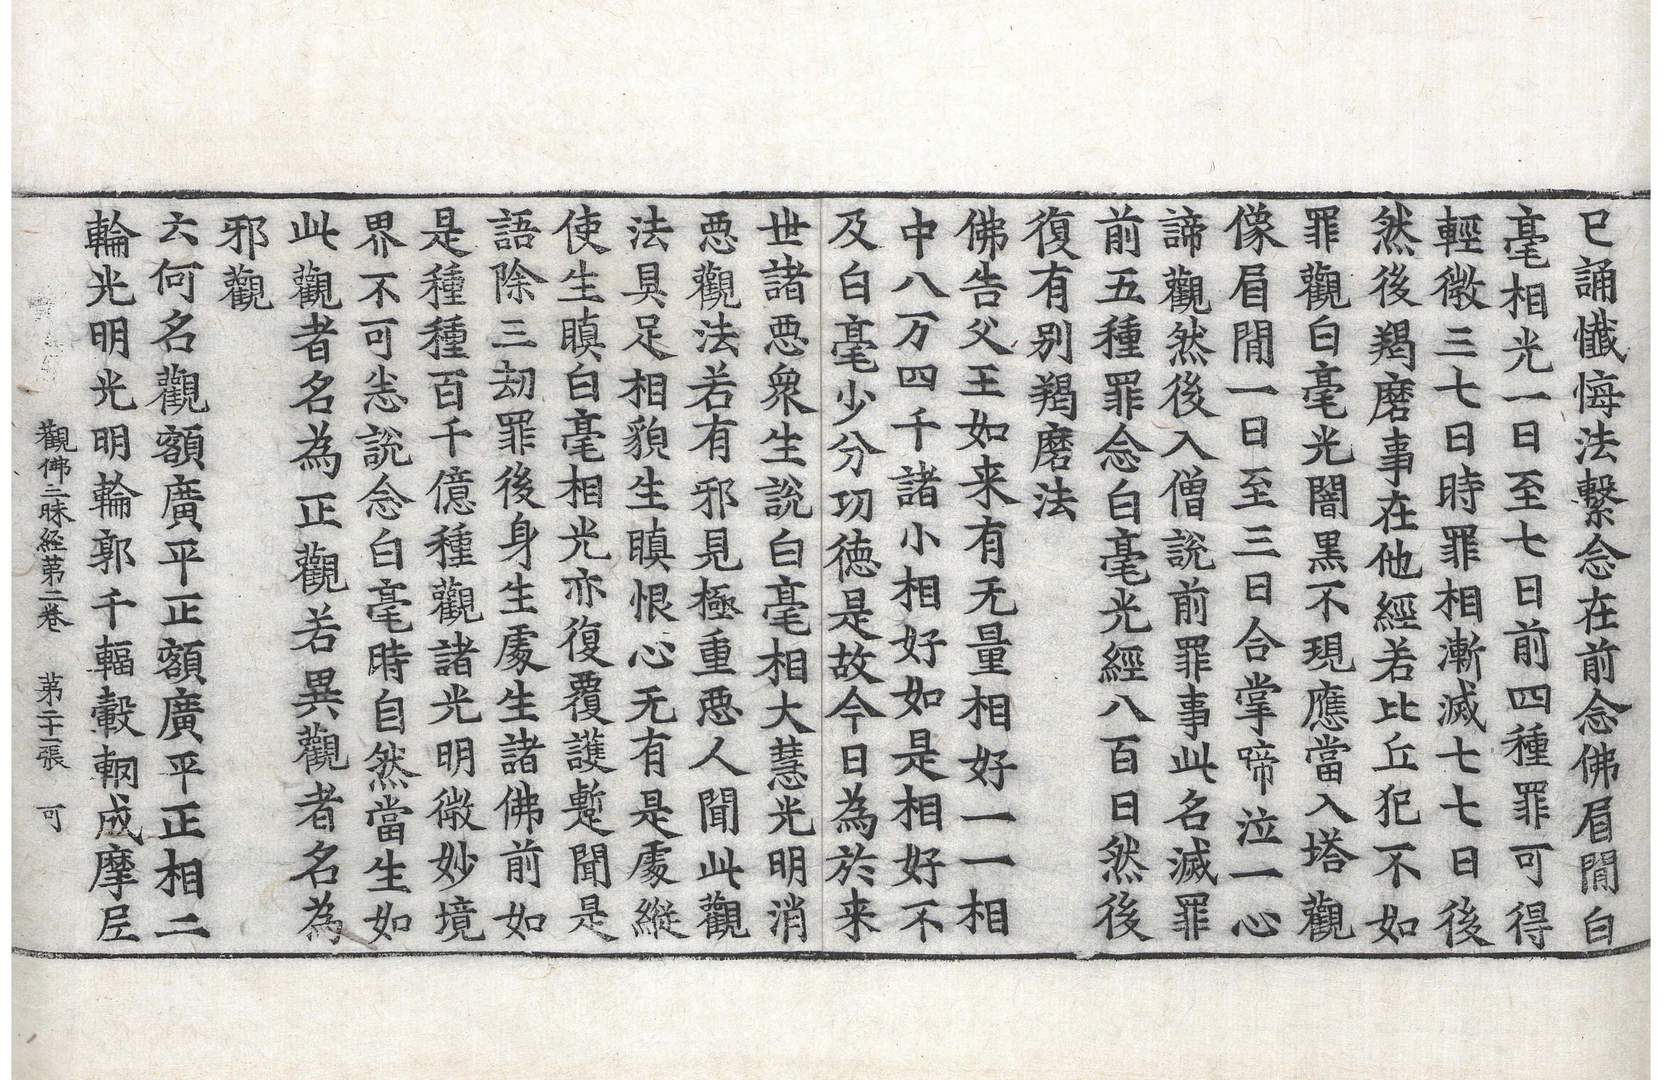 已誦懺悔法繫念在前念佛眉間白
毫相光一日至七日前四種罪可得
輕微三七日時罪相漸滅七七日後
然後羯磨事在他經若比丘犯不如
罪觀白毫光闇黒不現應當入塔觀
像眉間一日至三日合掌啼泣一心
諦觀然後入僧說前罪事此名滅罪
前五種罪念白毫光經八百日然後
復有別羯磨法
佛告父王如来有无量相好一一相
中八万四千諸小相好如是相好不
及白毫少分功德是故今日為於来
世諸惡衆生說白毫相大慧光明消
惡觀法若有邪見極重惡人聞此觀
法具足相貌生瞋恨心无有是處縱
使生瞋白毫相光亦復覆護暫聞是
語除三劫罪後身生處生諸佛前如
是種種百千億種觀諸光明微妙境
界不可悉說念白毫時自然當生如
此觀者名為正觀若異觀者名為
邪觀
云何名觀額廣平正額廣平正相二
輪光明光明輪郭千輻轂輞成摩尼
觀佛三昧経苐二卷　苐二十一張　可